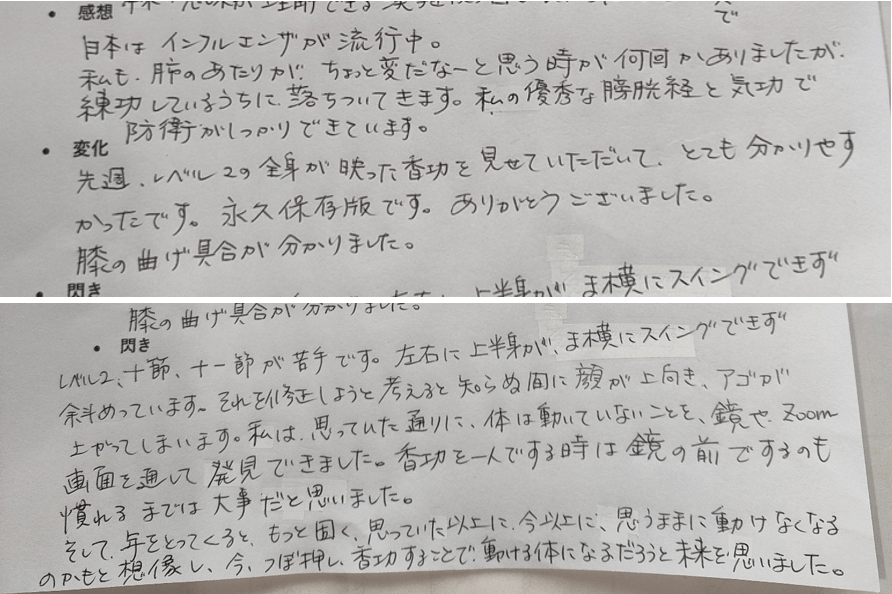 ・感想
日本は インフルエンザが 流行中。
私も、肺のあたりが、ちょっと変だなーと思う時が 何回かありましたが、
練功しているうちに、落ちついてきます。私の優秀な膀胱経と気功で
防衛がしっかりできています。
・変化
先週、レベル2の全身が映った香功を見せていただいて、とても分かりやす
かったです。永久保存版です。ありがとうございました。
膝の曲げ具合が分かりました。
・閃き
上半身が、ま横にスイングできず
膝の曲げ具合が分かりました。
・閃き
レベル2、十節、十一節が苦手です。左右に上半身が、ま横にスイングできず
斜めっています。それを修正しようと考えると知らぬ間に顔が上向き、アゴが
上がってしまいます。私は、思っていた通りに、体は動いていないことを、鏡や、Zoom
画面を通して発見できました。香功を一人でする時は鏡の前でするのも
慣れるまでは大事だと思いました。
そして、年をとってくると、もっと固く、思っていた以上に、今以上に、思うままに動けなくなる
のかもと想像し、今、つぼ押し、香功することで、動ける体になるだろうと未来を思いました。